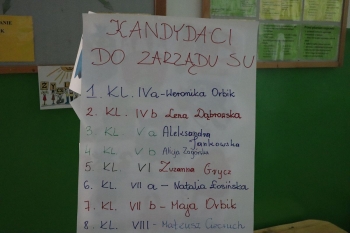 KANDYDACI
DO ZARZĄDU SU
1. KL. IVa - Weronika Orbik
2. KL. IV b Lena Dąbrowska
3 KL. V a Aleksandra
Jankowska
4 KL. V b Alicja
5 KL. VI Zuzanna
6. KL. VII a - Natalia Łosińska
7. KL. VII b - Maja Orbik
8 KL. VIII - Mateusz